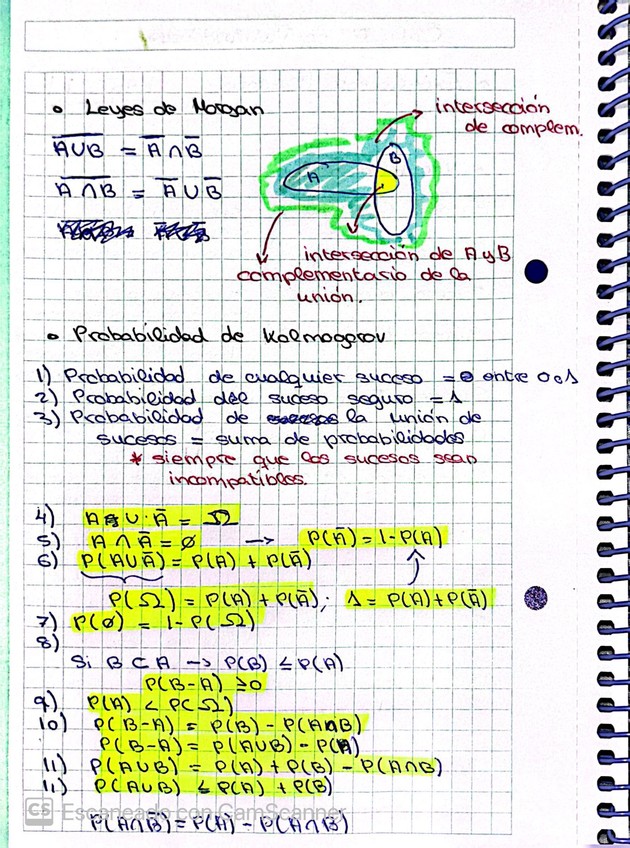 • Leyes de Morgan
intersección
de complem.
A∪B̅ = A̅ ∩ B̅
A∩B̅ = A̅ ∪ B̅
A
B
intersección de A y B
complementario de la
unión.
• Probabilidad de Kolmogrov
1) Probabilidad de cualquier suceso = entre 0 o 1
2) Probabilidad del suceso seguro = 1
3) Probabilidad de la unión de
sucesos = suma de probabilidades
* siempre que los sucesos sean
incompatibles.
4) A ∪ A̅ = Ω
5) A ∩ A̅ = ∅ → P(A̅) = 1 - P(A)
6) P(A∪A̅) = P(A) + P(A̅)
P(Ω) = P(A) + P(A̅); 1 = P(A) + P(A̅)
7) P(∅) = 1 - P(Ω)
8)
Si B ⊂ A → P(B) ≤ P(A)
P(B-A) ≥ 0
9) P(A) < P(Ω)
10) P(B-A) = P(B) - P(A∩B)
P(B-A) = P(A∪B) - P(A)
11) P(A∪B) = P(A) + P(B) - P(A∩B)
11) P(A∪B) ≤ P(A) + P(B)
CS Escaneado con CamScanner
P(A∩B̅) = P(A) - P(A∩B)